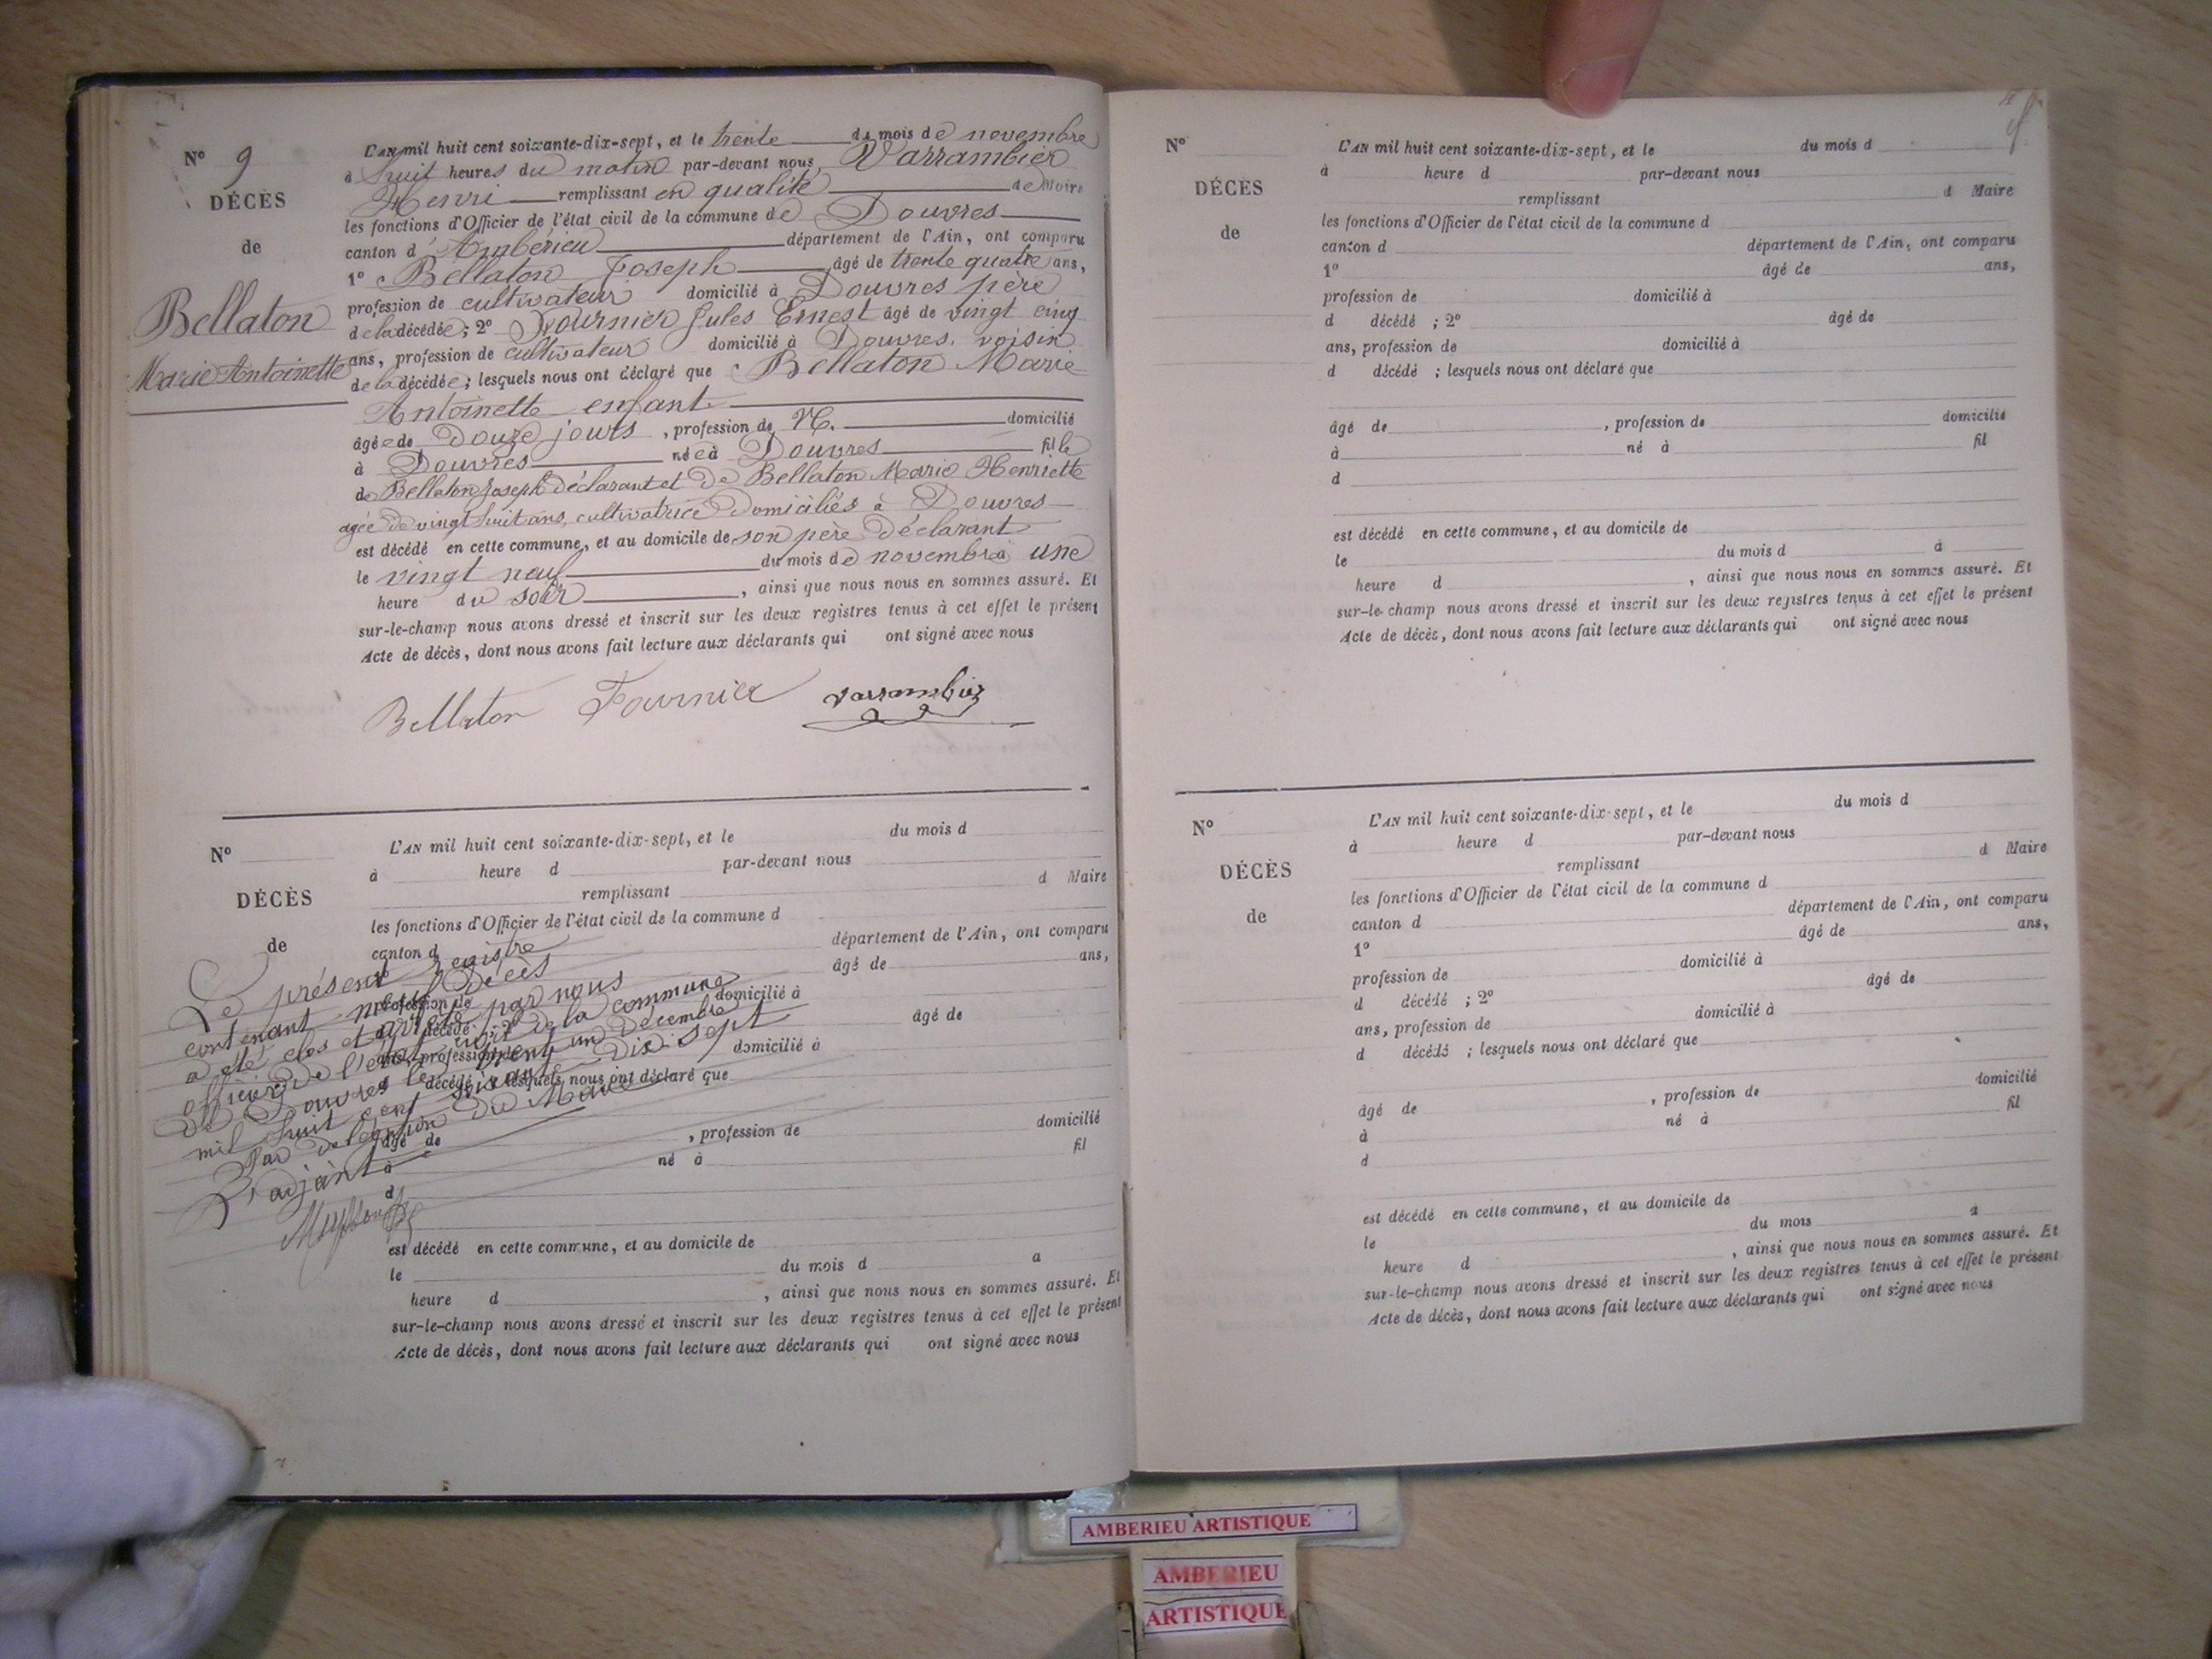 N° 9
DÉCÈS
de
Bellaton
Marie Antoinette
L'AN mil huit cent soixante-dix-sept, et le trente du mois de novembre
à huit heures du matin par-devant nous Varrambier
Henri remplissant en qualité de Maire
les fonctions d'Officier de l'état civil de la commune de Douvres
canton d'Ambérieu département de l'Ain, ont comparu
1° Bellaton Joseph âgé de trente quatre ans,
profession de cultivateur domicilié à Douvres père
de la décédée ; 2° Fournier Jules Ernest âgé de vingt cinq
ans, profession de cultivateur domicilié à Douvres, voisin
de la décédée ; lesquels nous ont déclaré que Bellaton Marie
Antoinette enfant
âgée de Douze jours , profession de domicilié
à Douvres née à Douvres fille
de Bellaton Joseph déclarant et de Bellaton Marie Henriette
agée de vingt huit ans, cultivatrice Domiciliés à Douvres
est décédé en cette commune, et au domicile de son père déclarant
le vingt neuf du mois de novembre à une
heure du soir , ainsi que nous nous en sommes assuré. Et
sur-le-champ nous avons dressé et inscrit sur les deux registres tenus à cet effet le présent
Acte de décès, dont nous avons fait lecture aux déclarants qui ont signé avec nous
Bellaton Fournier Varrambier
N°
DÉCÈS
de
L'AN mil huit cent soixante-dix-sept, et le du mois d
à heure d par-devant nous
remplissant d Maire
les fonctions d'Officier de l'état civil de la commune d
canton d département de l'Ain, ont comparu
âgé de ans,
profession de domicilié à
décédé âgé de
profession domicilié à
décédé lesquels nous ont déclaré que
âgé de , profession de domicilié
à né à fil
d
est décédé en cette commune, et au domicile de
le du mois d a
heure d , ainsi que nous nous en sommes assuré. Et
sur-le-champ nous avons dressé et inscrit sur les deux registres tenus à cet effet le présent
Acte de décès, dont nous avons fait lecture aux déclarants qui ont signé avec nous
Le présent registre
contenant neuf Décès
a été clos et arrêté par nous
officier de l'état civil de la commune
de Douvres le trent un décembre
mil huit cent soixante dix-sept
Par délégation du Maire
L'adjoint
N°
DÉCÈS
de
L'AN mil huit cent soixante-dix-sept, et le du mois d
à heure d par-devant nous
remplissant d Maire
les fonctions d'Officier de l'état civil de la commune d
canton d département de l'Ain, ont comparu
1° âgé de ans,
profession de domicilié à
d décédé ; 2° âgé de
ans, profession de domicilié à
d décédé ; lesquels nous ont déclaré que
âgé de , profession de domicilié
à né à fil
d
est décédé en cette commune, et au domicile de
le du mois d à
heure d , ainsi que nous nous en sommes assuré. Et
sur-le-champ nous avons dressé et inscrit sur les deux registres tenus à cet effet le présent
Acte de décès, dont nous avons fait lecture aux déclarants qui ont signé avec nous
N°
DÉCÈS
de
L'AN mil huit cent soixante-dix-sept, et le du mois d
à heure d par-devant nous
remplissant d Maire
les fonctions d'Officier de l'état civil de la commune d
canton d département de l'Ain, ont comparu
1° âgé de ans,
profession de domicilié à
d décédé ; 2° âgé de
ans, profession de domicilié à
d décédé ; lesquels nous ont déclaré que
âgé de , profession de domicilié
à né à fil
d
est décédé en cette commune, et au domicile de
le du mois a
heure d , ainsi que nous nous en sommes assuré. Et
sur-le-champ nous avons dressé et inscrit sur les deux registres tenus à cet effet le présent
Acte de décès, dont nous avons fait lecture aux déclarants qui ont signé avec nous
AMBERIEU ARTISTIQUE
AMBERIEU
ARTISTIQUE